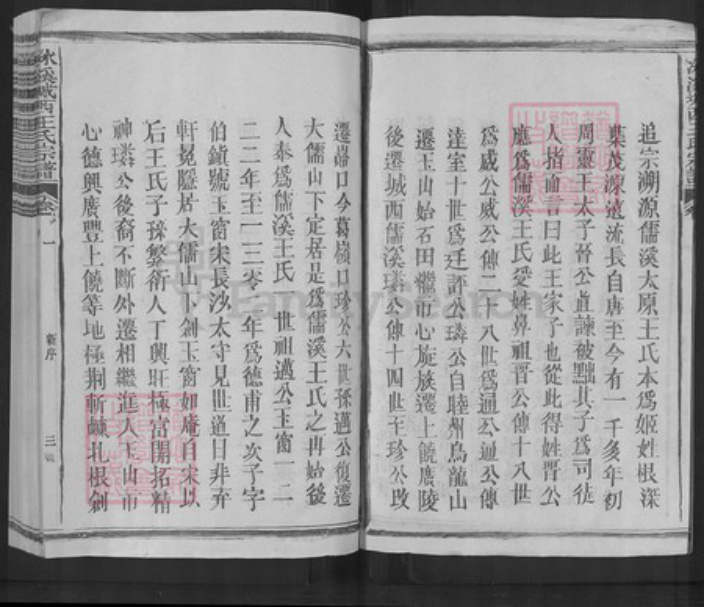 追宗溯源儒溪太原王氏本爲姬姓根深
葉茂源遠流長自唐至今有一千多年初
周靈王太子晉公直諫被黜其子爲司徒
人指而言曰此王家子也從此得姓晉公
應爲儒溪王氏受姓鼻祖晉公傳十八世
爲威公威公傳二十八世爲通公通公傳
逹室十世爲廷評公璘公自睦州烏龍山
遷玉山始石田繼市心旋族遷上饒廣陵
後遷城西儒溪璘公傳十四世至珍公改
遷嵓口今葛嶺口珍公六世孫邁公復遷
大儒山下定居是爲儒溪王氏之冉始後
人奉爲儒溪王氏一世祖邁公玉窗一一二
二二年至一一三零一年爲德甫之次子字
伯鎮號玉窗宋長沙太守見世道日非弃
軒冕隱居大儒山下創玉窗如庵自宋以
后王氏子孫繁衍人丁興旺極富開拓精
神璘公後裔不斷外遷相繼進人玉山市
心德興廣豐上饒等地極荆斬棘扎根創
冰溪城西王氏宗譜
新序
三
FamilySearch